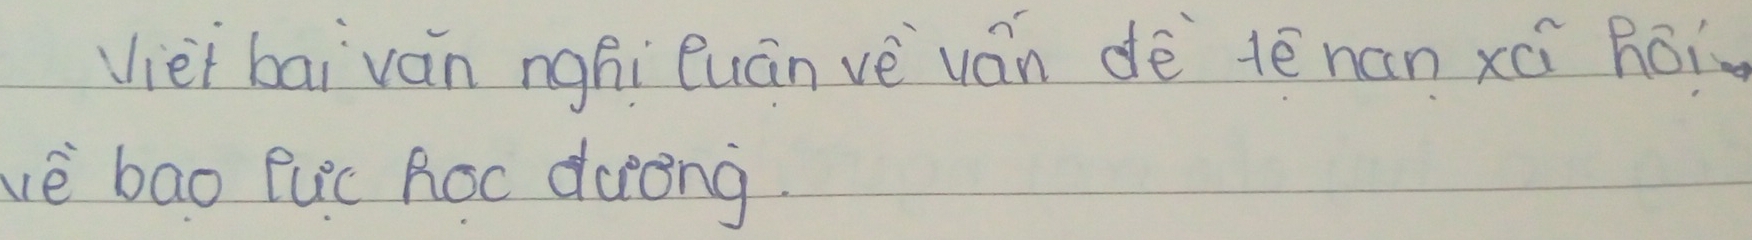 Viết bài văn nghị luận về vấn đề tệ nạn xã hội
về bạo lực học đường.